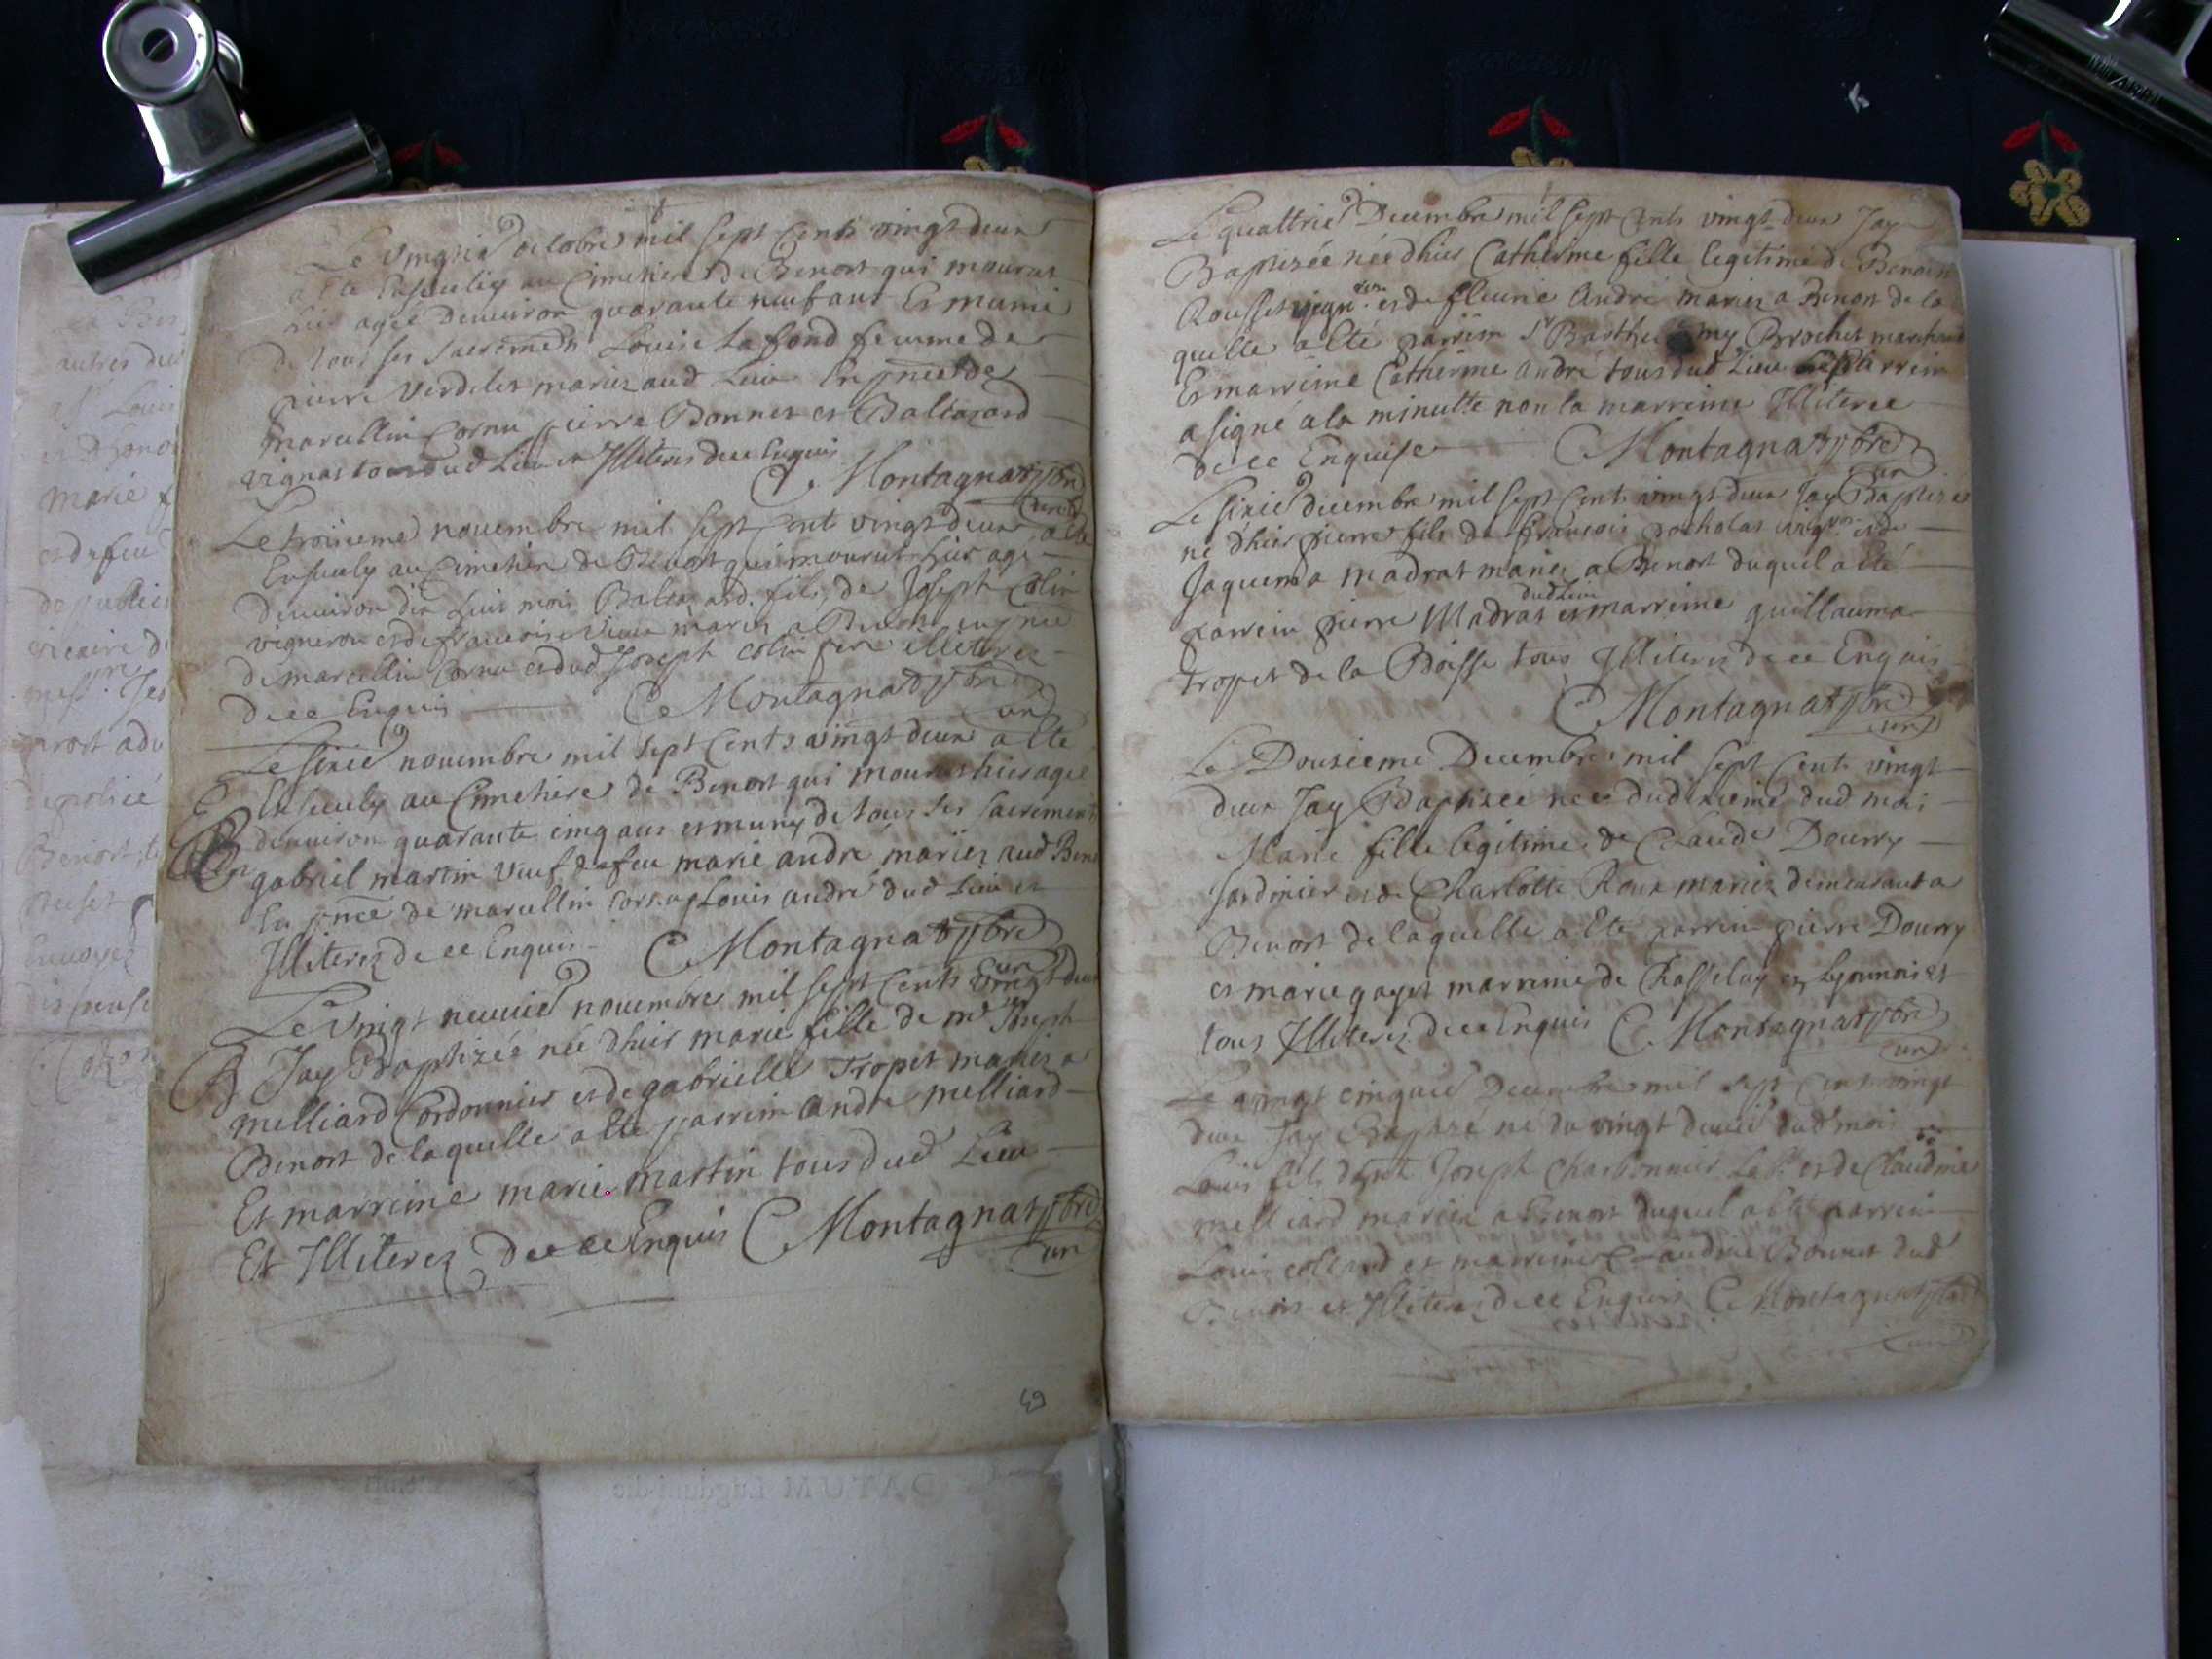 Le vingtie octobre mil sept cents vingt deux
a Ete Ensevely au Cimetiere de Benost qui mourut
hier agée denviron quarante neuf ans Et munie
de tous ses sacremens Louise Lafond femme de
pierre Verdelet mariez aud Lieu En pnce de
marcellin Cornu pierre Bonnet et Baltazard
vignas tous dud Lieu et Illiterez de ce Enquis
C Montagnat pbre
curé
Le troisieme novembre mil sept Cent vingt deux a ete
Ensevely au Cimetiere de Benost qui mourut hier agé
denviron dix huit mois Baltazard fils de Joseph Colin
vigneron et de francoise mariez a Benost en pnce
de marcellin Cornu et dud Joseph Colin pere illiterez
de ce Enquis C Montagnat pbre
curé
Le sixie novembre mil sept Cents vingt deux a ete
Ensevely au Cimetiere de Benost qui mourut hier agé
denviron quarante cinq ans et muny de tous ses sacremens
gabriel martin veuf de feu marie andré mariez aud Ben
En pnce de marcellin Cornu Louis andré dud Lieu et
Illiterez de ce Enquis C Montagnat pbre
curé
Le Vingt neuvie novembre mil sept Cents vingt deux
Jay Baptizée née dhier marie fille de mr Joseph
melliard Cordonnier et de gabrielle Tropet mariez a
Benost de laquelle a ete parrein andré melliard
Et marreine marie martin tous dud Lieu
Et Illiterez de ce Enquis C Montagnat pbre
curé
49
Le quattrie Decembre mil sept Cents vingt deux Jay
Baptizée née dhier Catherine fille legitime de Benoit
Rousset vigron et de fleurie André mariez a Benost de la
quelle a ete parrein Sr Barthelemy Brochet marchand
Et marreine Catherine andré tous dud Lieu Le parrein
a signé a la minutte non la marreine Illiteree
de ce Enquise C Montagnat pbre
curé
Le sixie decembre mil sept Cents vingt deux Jay Baptizé
né dhier pierre fils de francois pocholat vigron et de
Jaquema madrat mariez a Benost duquel a ete
dud Lieu
parrein pierre Madrat et marreine guillauma
tropet de la Boisse tous Illiterez de ce Enquis
C Montagnat pbre
curé
Le Dousieme Decembre mil sept Cents vingt
deux Jay Baptizée née du dixieme dud mois
Marie fille legitime de Claude Dourry
Jardinier et de Charlotte Roux mariez demeurant a
Benost de laquelle a Ete parrein pierre Dourry
et marie gayet marreine de Chasselay en Lyonnois et
tous Illiterez de ce Enquis C Montagnat pbre
curé
Le vingt cinquie Decembre mil sept Cents vingt
deux Jay Baptizé né du vingt deuxie dud mois
Louis fils de Joseph Charbonnier et de Claudine
melliard mariez a Benost duquel a ete parrein
Louis collard et marreine Claudine Bonnet dud
Benost et Illiterez de ce Enquis C Montagnat pbre
curé
DATUM Lugduni die